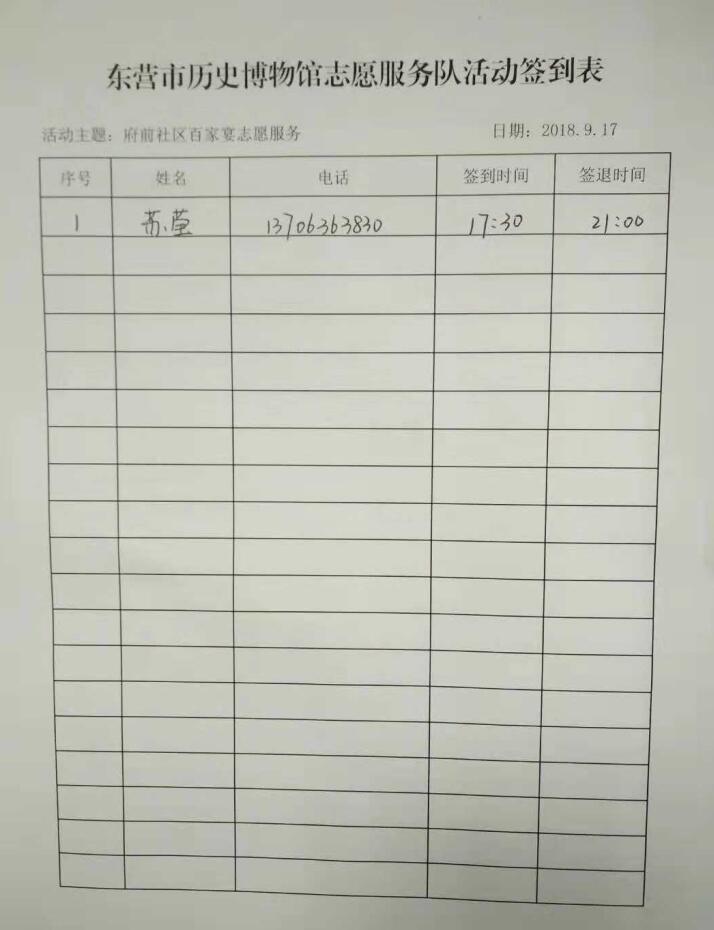 东营市历史博物馆志愿服务队活动签到表
活动主题：府前社区百家宴志愿服务 日期：2018.9.17
序号 姓名 电话 签到时间 签退时间
1 苏莹 13706363830 17:30 21:00